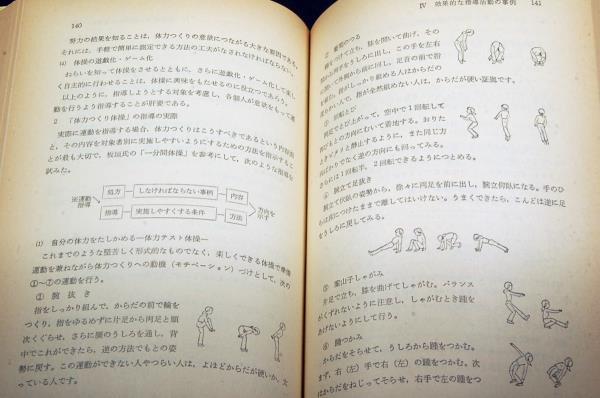 140
努力の結果を知ることは、体力つくりの意欲につながる大きな要因である。
それには、手軽で簡単に測定できる方法の工夫がなされなければならない。
(4) 体操の遊戯化・ゲーム化
ねらいを知って体操をさせるとともに、さらに遊戯化・ゲーム化して楽し
く自主的に行わせることは、体操に興味をもたせるのに役立つであろう。
以上のように、指導しようとする対象を考慮し、各個人が意欲をもって運
動を行うよう指導することが肝要である。
2 「体力つくり体操」の指導の実際
実際に運動を指導する場合、体力つくりはこうすべきであるという内容
と、その内容を対象者別に実施しやすいようにするための方法を指示するこ
とが最も大切で、板垣氏の「一分間体操」を参考にして、次のような指導を
試みた。
※運動指導
処方
しなければならない事柄
内容
指導
実施しやすくする条件
方法
方向を示す
(1) 自分の体力をたしかめる—体力テスト体操—
これまでのような堅苦しく形式的なものでなく、楽しくできる体操で準備
運動を兼ねながら体力つくりへの動機（モチベーション）づけとして、次の
①〜⑦の運動を行う。
① 腕抜き
指をしっかり組んで、からだの前で輪を
つくり、指をゆるめずに片足から両足と順
次くぐらせ、さらに腰のうしろを通し、背
中でこれができたら、逆の方法でもとの姿
勢に戻す。この運動ができない人やつらい人は、よほどからだが硬いか、太
っている人です。
IV 効果的な指導活動の事例 141
足首のつる
足をつけて立ち、膝を開いて曲げ、その
間から両手をうしろに出し、この手を左右
に開いて外側から前に回し、足首の前で指
を組む。指がしっかり組める人はからだの
柔らかい人で、指が全然組めない人は、からだが硬い証拠です。
回転とび
両足でとび上がって、空中で1回転して
もとの方向にむいて着地する。おりた
ときピタリと静止するように、また同じ方
向ばかりでなく逆の方向にも回ってみる。
さらには1回転半、2回転できるようにつとめる。
④ 腕立て足抜き
腕立て伏臥の姿勢から、徐々に両足を前に出し、腕立仰臥になる。手のひ
らは床につけたままで離してはいけない。うまくできたら、こんどは逆に足
をうしろに戻してみる。
⑤ 案山子しゃがみ
片足で立ち、膝を曲げてしゃがむ。バランス
がくずれないように注意し、しゃがむとき踵を
あげないようにして行う。
⑥ 踵つかみ
からだをそらせて、うしろから踵をつかむ。
まず、右（左）手で右（左）の踵をつかむ。次
はからだをねじってそらせ、右手で左の踵をつ